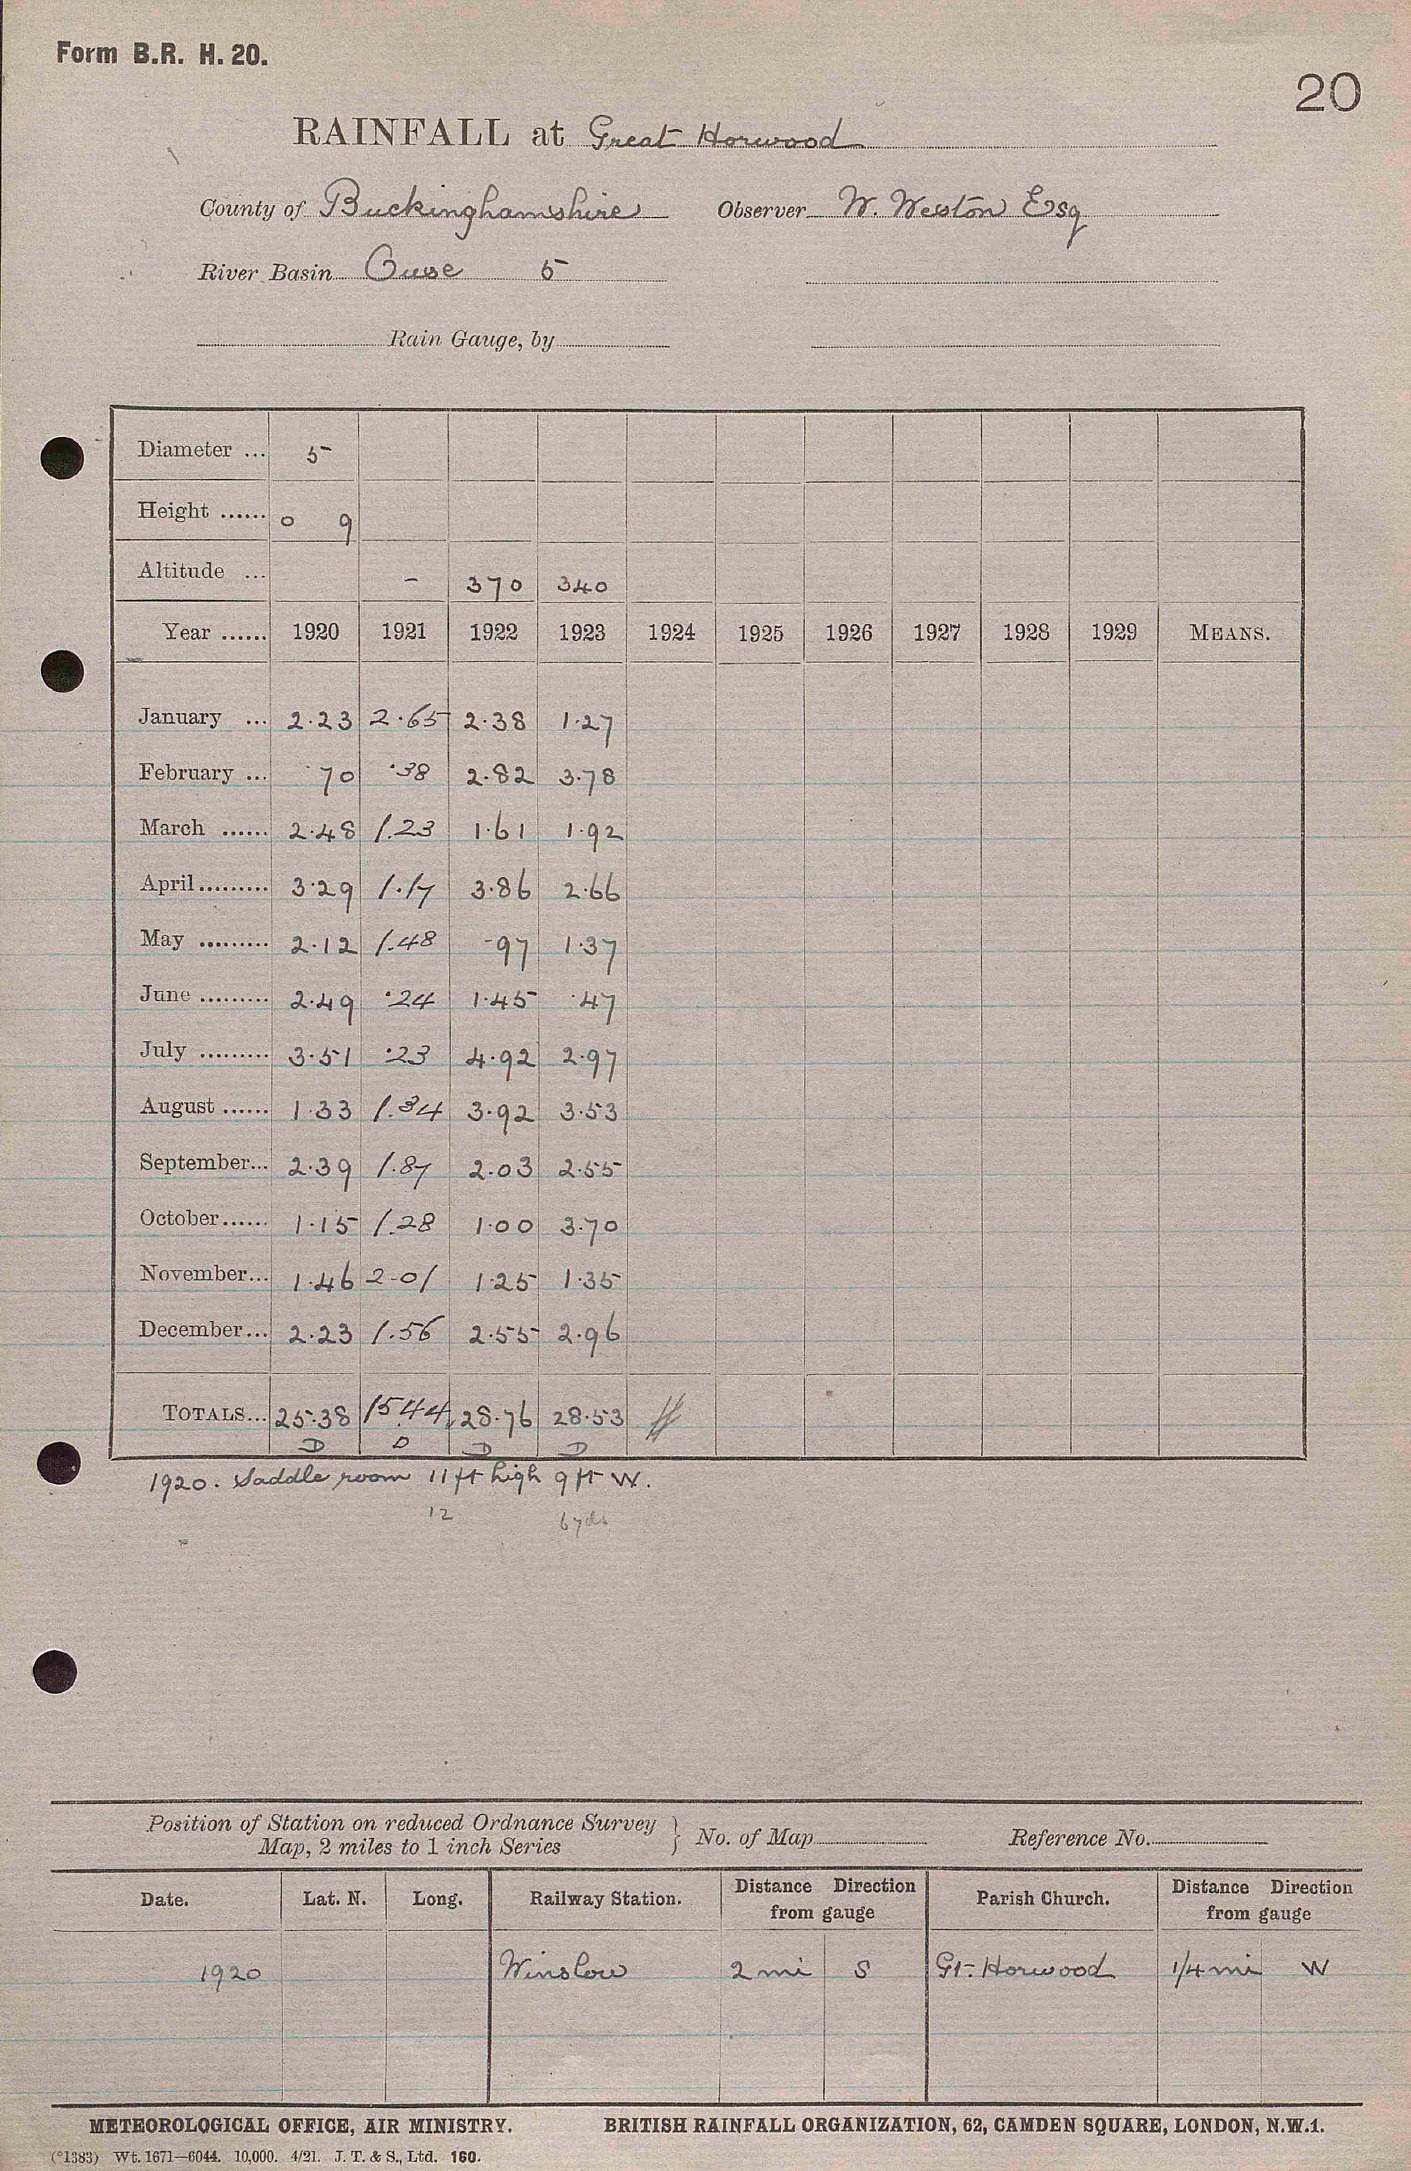 Form B.R. H. 20.
20
RAINFALL at Great Horwood
County of Buckinghamshire Observer W. Weston Esq
River Basin Ouse 5
Rain Gauge, by
Diameter ... 5
Height ...... 0 9
Altitude ... - 370 340
Year ...... 1920 1921 1922 1923 1924 1925 1926 1927 1928 1929 MEANS.
January ... 2.23 2.65 2.38 1.27
February ... .70 .38 2.82 3.78
March ...... 2.48 1.23 1.61 1.92
April ......... 3.29 1.17 3.86 2.66
May ......... 2.12 1.48 .97 1.37
June ......... 2.49 .24 1.45 .47
July ......... 3.51 .23 4.92 2.97
August ...... 1.33 1.34 3.92 3.53
September... 2.39 1.87 2.03 2.55
October...... 1.15 1.28 1.00 3.70
November... 1.46 2.01 1.25 1.35
December... 2.23 1.56 2.55 2.96
TOTALS... 25.38 15.44 28.76 28.53
D D D D
1920. Saddle room 11 ft high 9 ft W.
12 6 yds
Position of Station on reduced Ordnance Survey
Map, 2 miles to 1 inch Series } No. of Map Reference No.
Date. Lat. N. Long. Railway Station. Distance Direction from gauge Parish Church. Distance Direction from gauge
1920 Winslow 2 mi S Gt. Horwood 1/4 mi W
METEOROLOGICAL OFFICE, AIR MINISTRY. BRITISH RAINFALL ORGANIZATION, 62, CAMDEN SQUARE, LONDON, N.W.1.
(*1383) Wt. 1671—6044. 10,000. 4/21. J. T. & S., Ltd. 160.